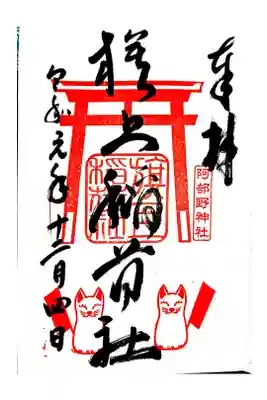 奉拝
阿部野神社
旗上稲荷社
令和元年十二月四日